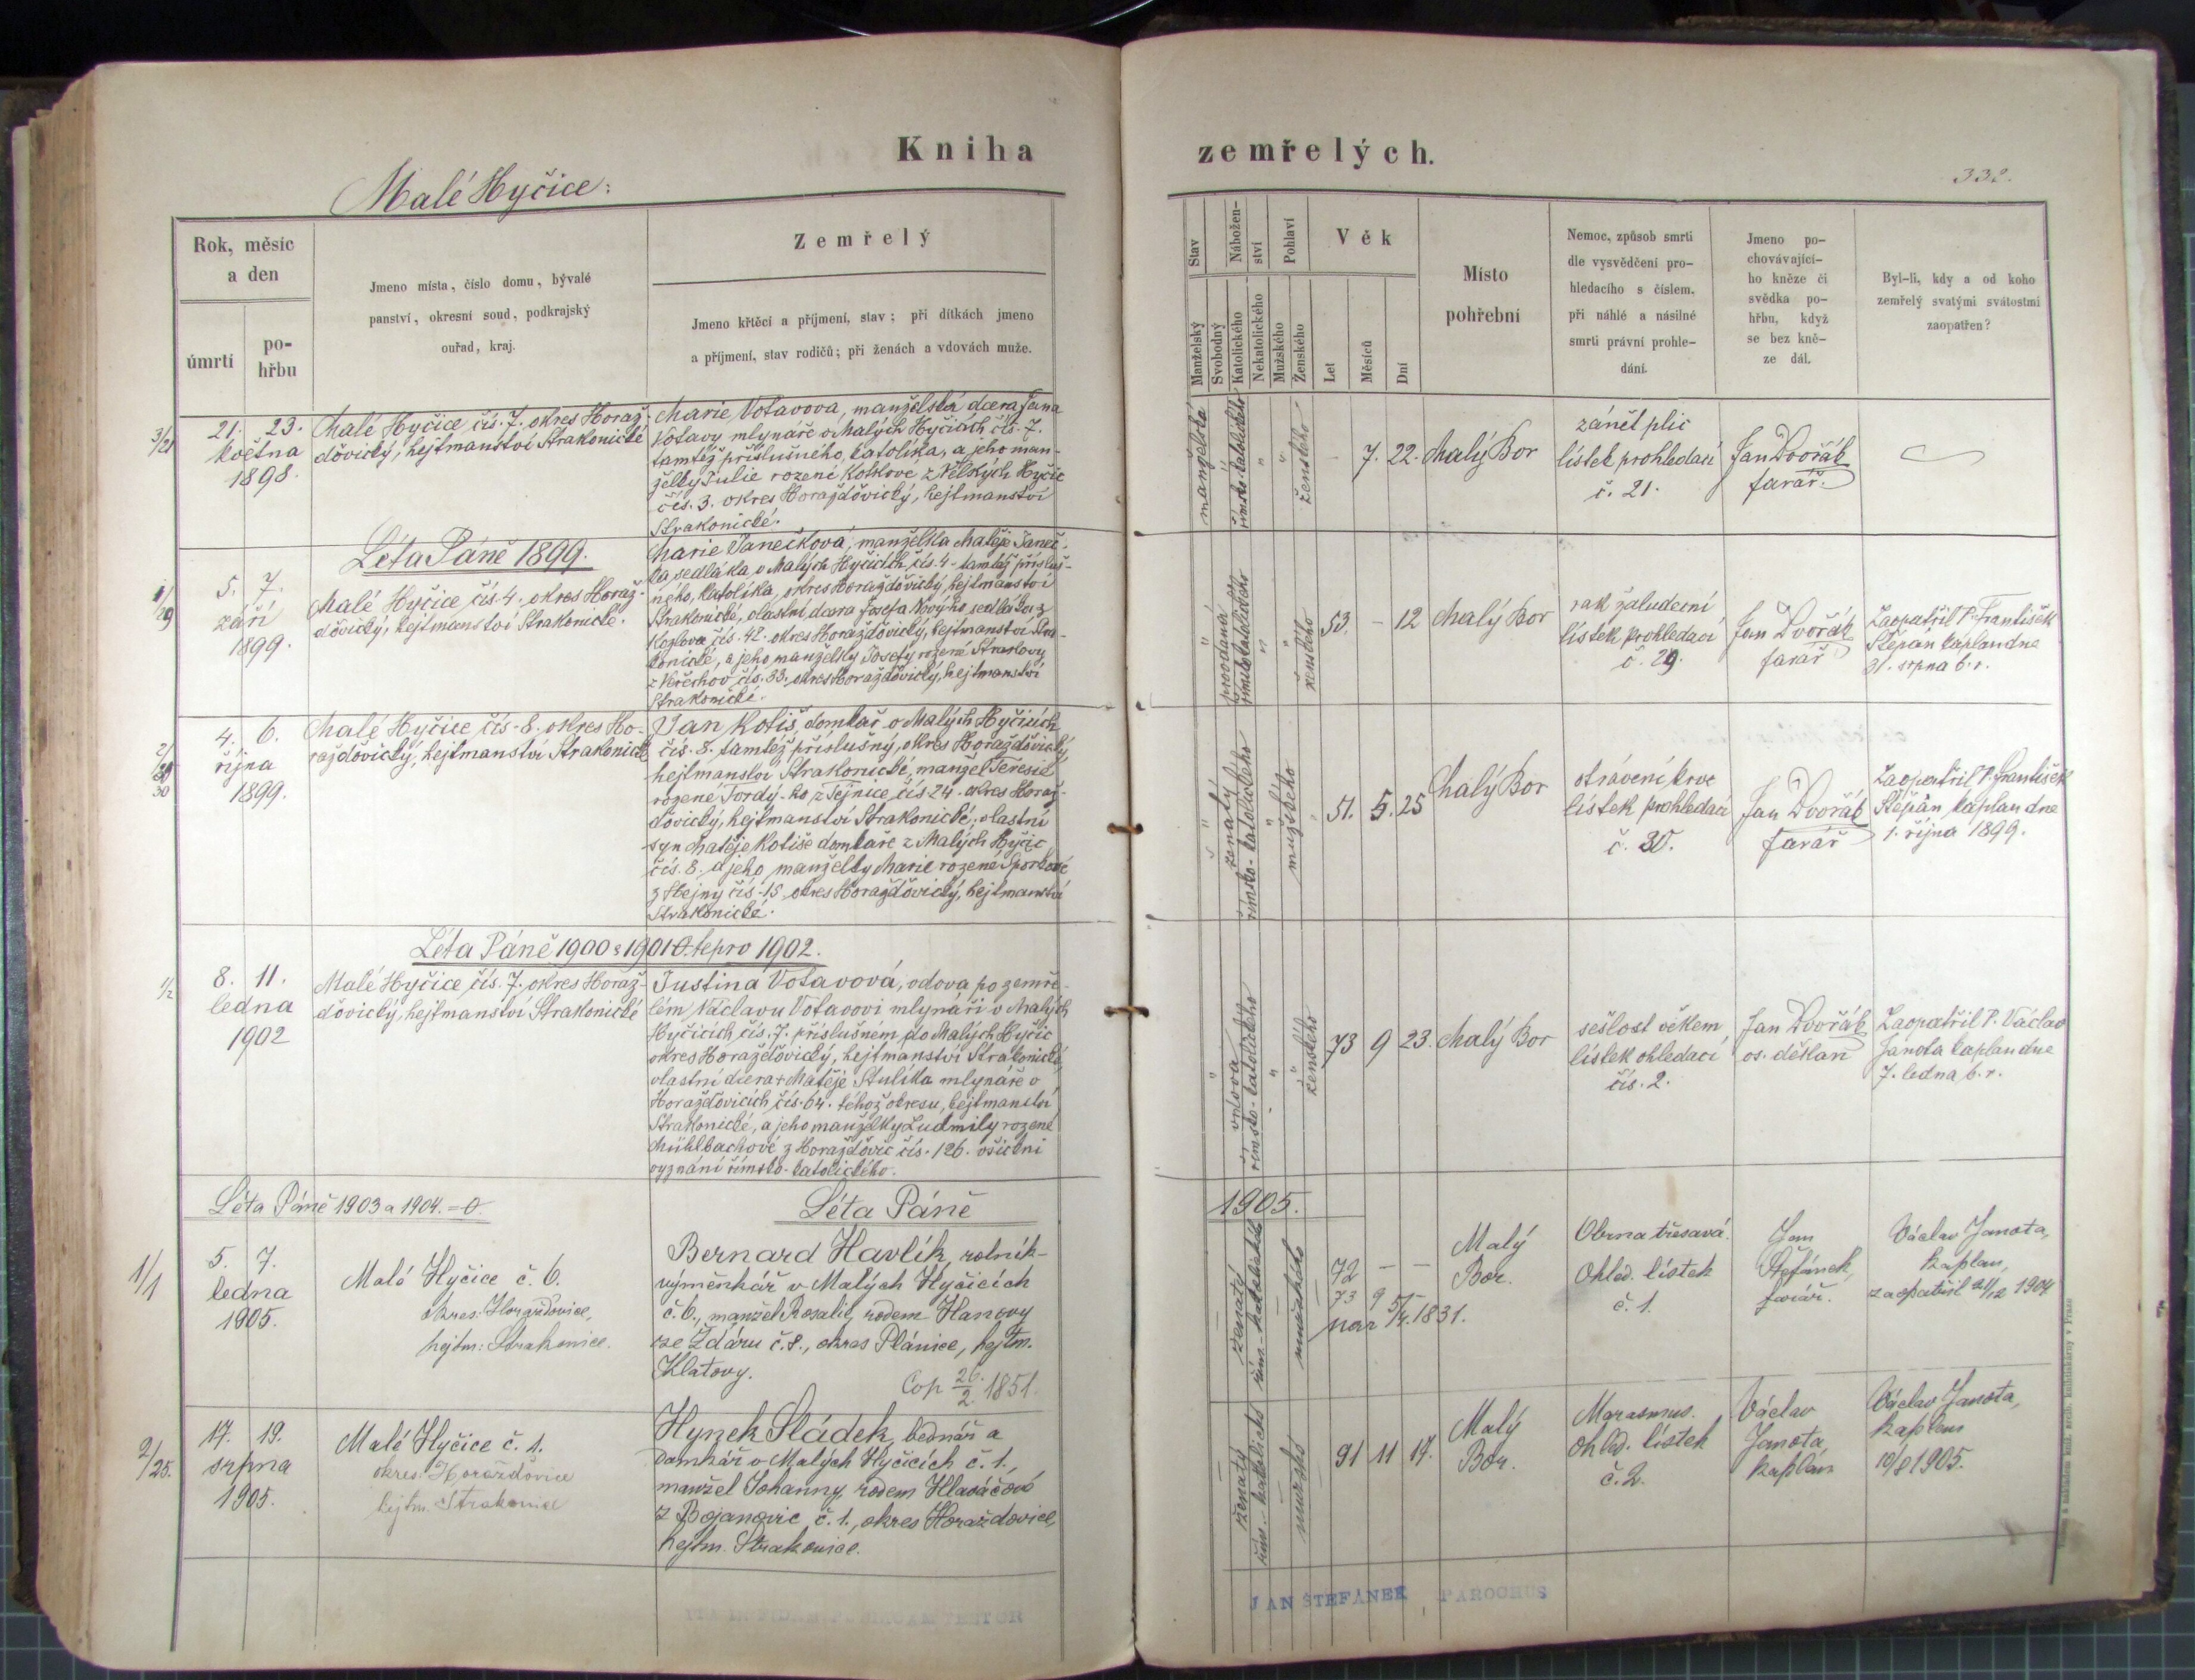 Kniha zemřelých.
Malé Hyčice:
332.
Rok, měsíc a den
úmrtí
pohřbu
Jmeno místa, číslo domu, bývalé
panství, okresní soud, podkrajský
ouřad, kraj.
Zemřelý
Jmeno křtěcí a příjmení, stav; při dítkách jmeno
a příjmení, stav rodičů; při ženách a vdovách muže.
Stav
Manželský
Svobodný
Nábožen-
ství
Katolického
Nekatolického
Pohlaví
Mužského
Ženského
Věk
Let
Měsíců
Dní
Místo
pohřební
Nemoc, způsob smrti
dle vysvědčení pro-
hledacího s číslem,
při náhlé a násilné
smrti právní prohle-
dání.
Jmeno po-
chovávající-
ho kněze či
svědka po-
hřbu, když
se bez kně-
ze dál.
Byl-li, kdy a od koho
zemřelý svatými svátostmi
zaopatřen?
3/21
21. 23.
května
1898.
Malé Hyčice čís. 7. okres Horaž-
ďovický, hejtmanství Strakonické
Marie Votavova, manželská dcera Jana
Votavy mlynáře v Malých Hyčicích čís. 7.
tamtéž příslušného, katolíka, a jeho man-
želky Julie rozené
z Velkých Hyčic
čís. 3. okres Horažďovický, hejtmanství
Strakonické.
manželská
římsko-katolického
ženského
- 7. 22.
Malý Bor
zánět plic
lístek prohledací
č. 21.
Jan Dvořák
farář.
Léta Páně 1899.
1/29
5. 7.
září
1899.
Malé Hyčice čís. 4. okres Horaž-
ďovický, hejtmanství Strakonické.
Marie Vanečková, manželka Matěje Vaneč-
ka sedláka v Malých Hyčicích, čís. 4. tamtéž přísluš-
ného, katolíka, okres Horažďovický, hejtmanství
Strakonické, vlastní dcera Josefa
sedláka z
Kozlova čís. 42. okres Horažďovický, hejtmanství Stra-
konické, a jeho manželky Josefy rozené
čís. 33. okres Horažďovický, hejtmanství
Strakonické.
provdaná
římskokatolického
ženského
53. - 12
Malý Bor
rak žaludeční
lístek prohledací
č. 29.
Jan Dvořák
farář
Zaopatřil P. František
Štěpán kaplan dne
31. srpna t. r.
2/30
4. 6.
října
1899.
Malé Hyčice čís. 8. okres Ho-
ražďovický, hejtmanství Strakonické
Jan Kotiš, domkář v Malých Hyčicích
čís. 8. tamtéž příslušný, okres Horažďovický
hejtmanství Strakonické, manžel Teresie
rozené
z Tejnice čís. 24. okres Horaž-
ďovický, hejtmanství Strakonické, vlastní
syn Matěje Kotiše domkáře z Malých Hyčic
čís. 8. a jeho manželky Marie rozené
čís. 15 okres Horažďovický, hejtmanství
Strakonické.
ženatý
římsko-katolického
mužského
51. 5. 25
Malý Bor
otrávení krve
lístek prohledací
č. 30.
Jan Dvořák
farář
Zaopatřil P. František
Štěpán kaplan dne
1. října 1899.
Léta Páně 1900 a 1901 0. tepro 1902.
1/2
8. 11.
ledna
1902
Malé Hyčice čís. 7. okres Horaž-
ďovický, hejtmanství Strakonické
Justina Votavová, vdova po zemře-
lém Václavu Votavovi mlynáři v Malých
Hyčicích čís. 7. příslušném do Malých Hyčic
okres Horažďovický, hejtmanství Strakonické,
vlastní dcera + Matěje Stulíka mlynáře v
Horažďovicích čís. 64. téhož okresu, hejtmanství
Strakonické, a jeho manželky Ludmily rozené
Mühlbachové z Horažďovic čís. 126. všichni
vyznání římsko-katolického.
vdova
římsko-katolického
ženského
73 9 23.
Malý Bor
sešlost věkem
lístek ohledací
čís. 2.
Jan Dvořák
os. děkan
Zaopatřil P. Václav
Janota kaplan dne
7. ledna t. r.
Léta Páně 1903 a 1904. = 0.
Léta Páně 1905.
1/1
5. 7.
ledna
1905.
Malé Hyčice č. 6.
okres: Horažďovice,
hejtm: Strakonice.
Bernard Havlík, rolník-
výměnkář v Malých Hyčicích
č. 6., manžel Rosalie, rodem Hanovy
ze Ždáru č. 8., okres Plánice, hejtm.
Klatovy.
Cop 26./2. 1851.
ženatý
řím.-katolického
mužského
72 - -
73 9
nar. 5/4. 1831.
Malý
Bor.
Obrna třesavá.
Ohled. lístek
č. 1.
Jan
Štefánek,
farář.
Václav Janota,
kaplan,
zaopatřil 21/12 1904
2/25.
17. 19.
srpna
1905.
Malé Hyčice č. 1.
okres: Horažďovice
hejtm. Strakonice
Hynek Sládek, bednář a
domkář v Malých Hyčicích č. 1.,
manžel Johanny, rodem Hlaváčové
z Bojanovic č. 1., okres Horažďovice,
hejtm. Strakonice.
ženatý
řím.-katolické
mužské
91 11 17.
Malý
Bor.
Marasmus.
Ohled. lístek
č. 2.
Václav
Janota
kaplan
Václav Janota,
kaplan
10/8 1905.
JAN ŠTEFÁNEK PAROCHUS